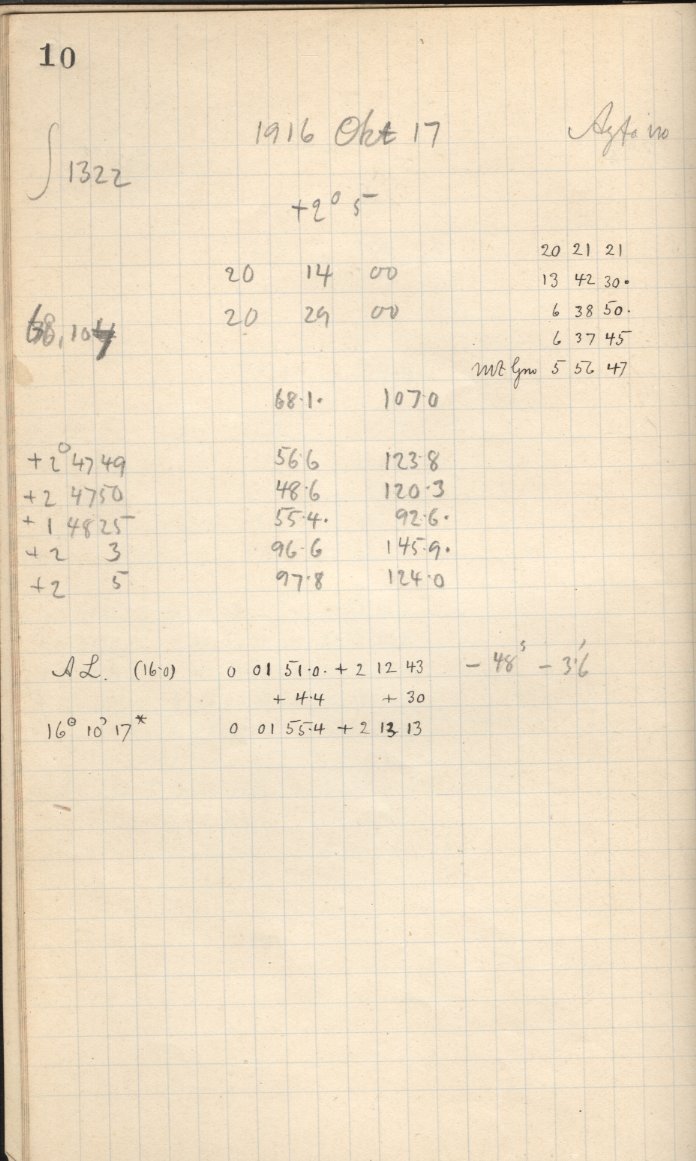 10
1916 Okt 17
∫ 1322
+2° 5
20 21 21
20 14 00
13 42 30.
20 29 00
6 38 50.
68,107
6 37 45
5 56 47
68.1. 107.0
+2° 47 49 56.6 123.8
+2 47 50 48.6 120.3
+1 48 25 55.4. 92.6.
+2 3 96.6 145.9.
+2 5 97.8 124.0
A L. (16.0) 0 01 51.0. + 2 12 43 - 48ˢ - 3.'6
+ 4.4 + 30
0 01 55.4 + 2 13 13